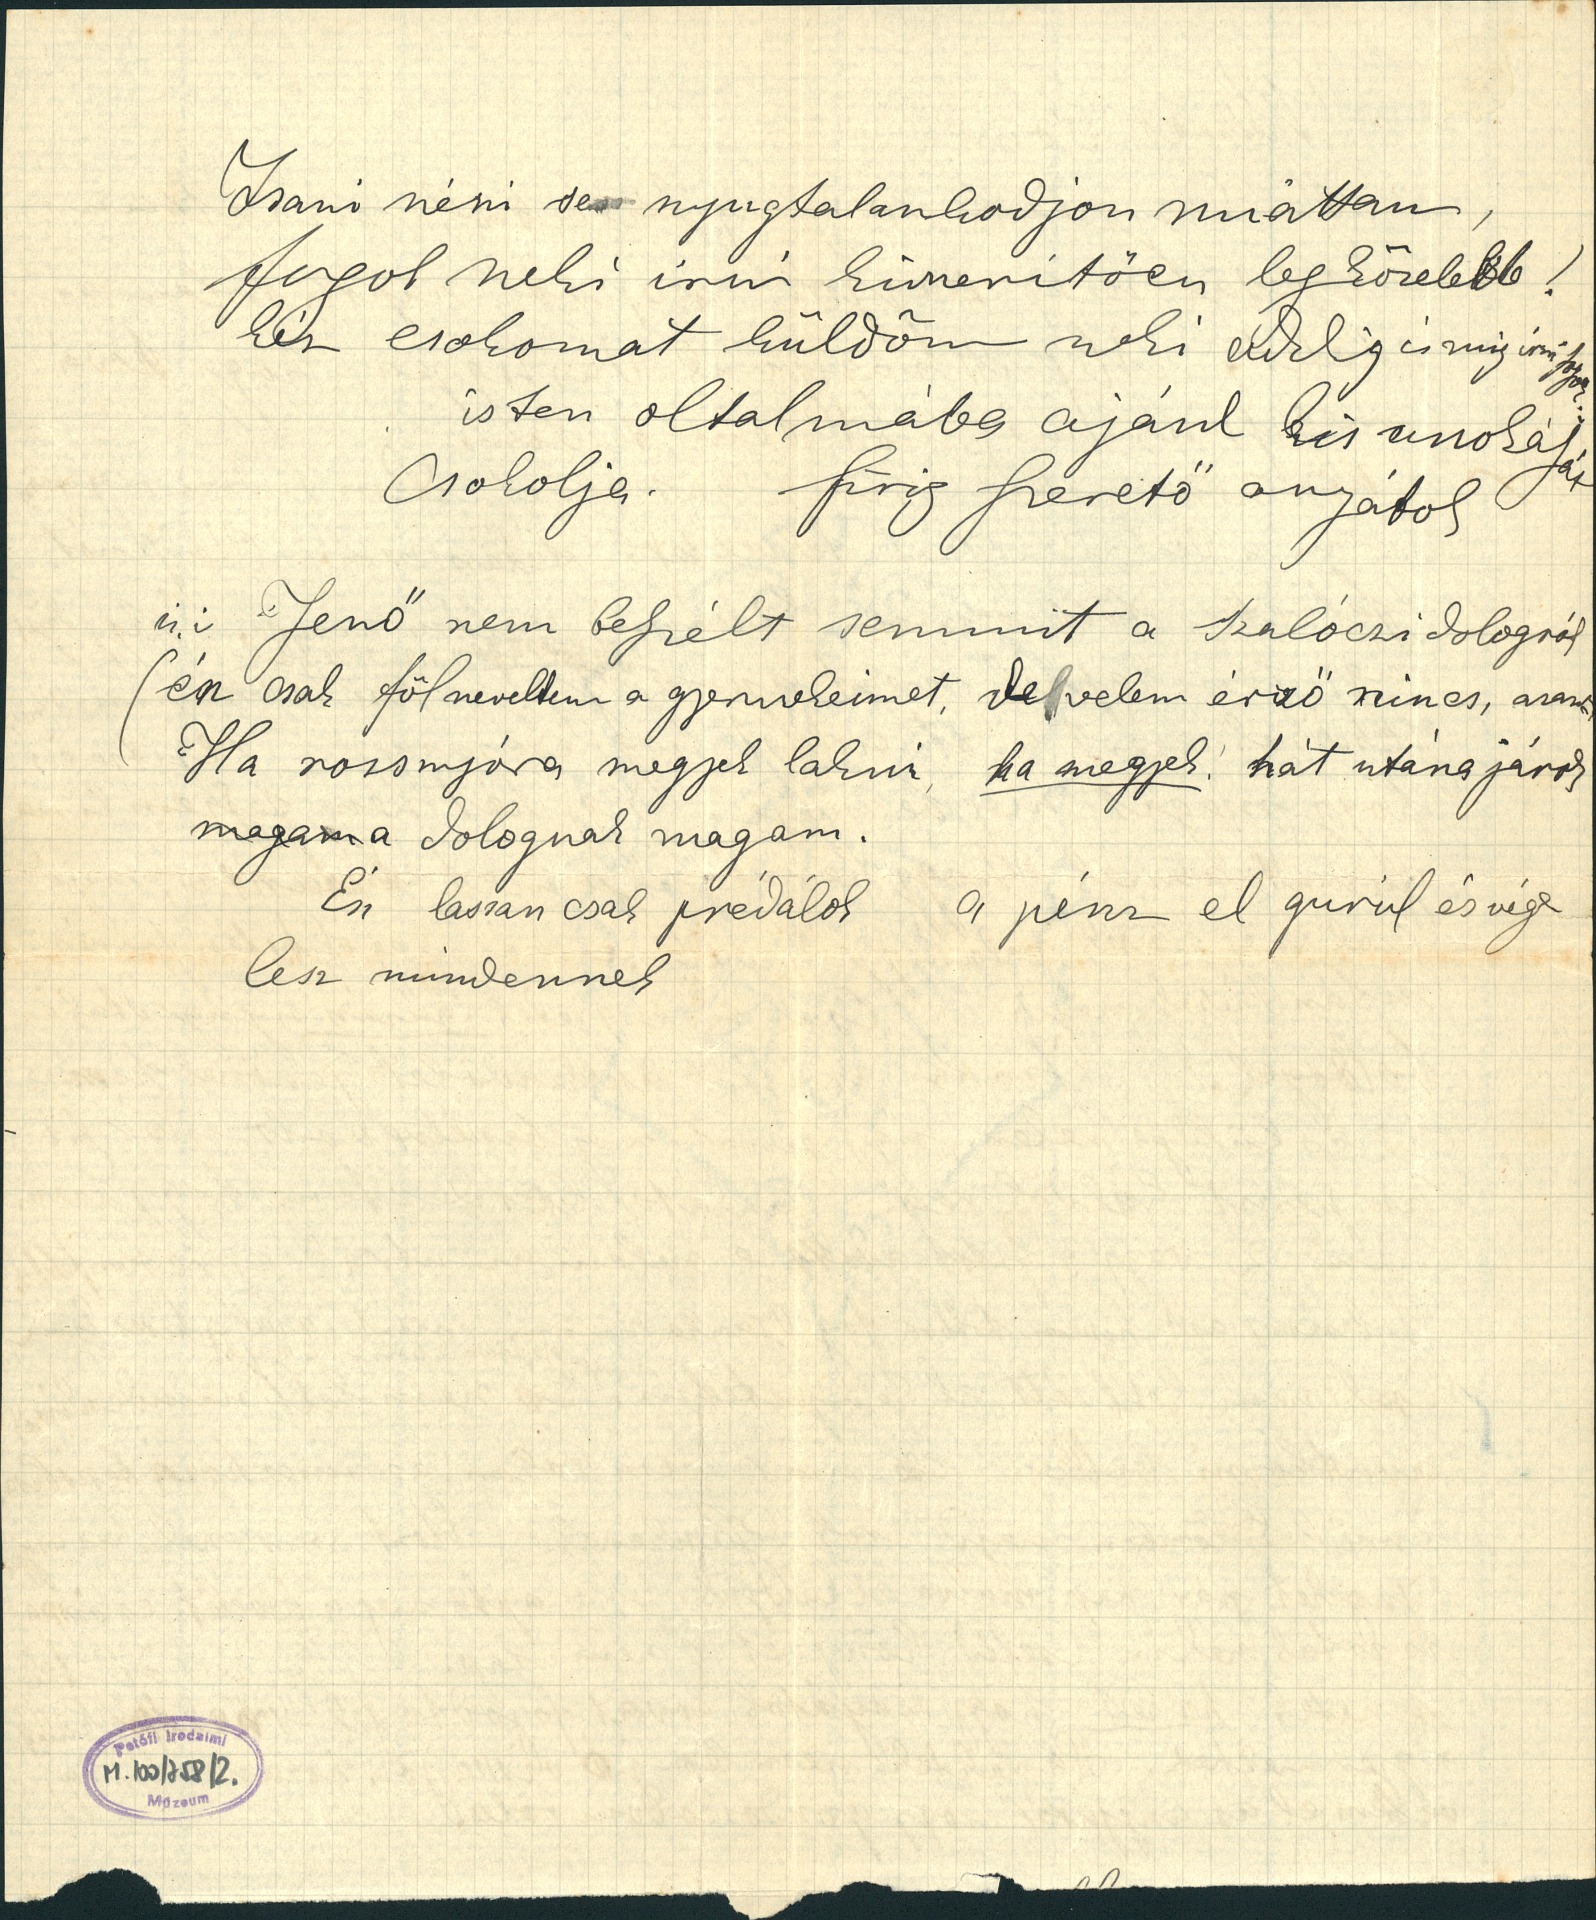 Zsani néni se nyugtalankodjon miattam,
fogok neki irni kimeritöen legközelebb!
kéz csokomat küldöm neki addig is mig irni fogok.
isten oltalmába ajánl kis unokáját
csokolja. sirig szerető anyátok
u.i Jenő nem beszélt semmit a szalóczi dologról
(én csak fölneveltem a gyermekeimet, de velem érző nincs,
Ha rozsnyóra megyek lakni, ha megyek! hát utána járok
magam a dolognak magam.
Én lassan csak prédálok a pénz el gurúl és vége
lesz mindennek
Petőfi Irodalmi
M.100/758/2.
Múzeum